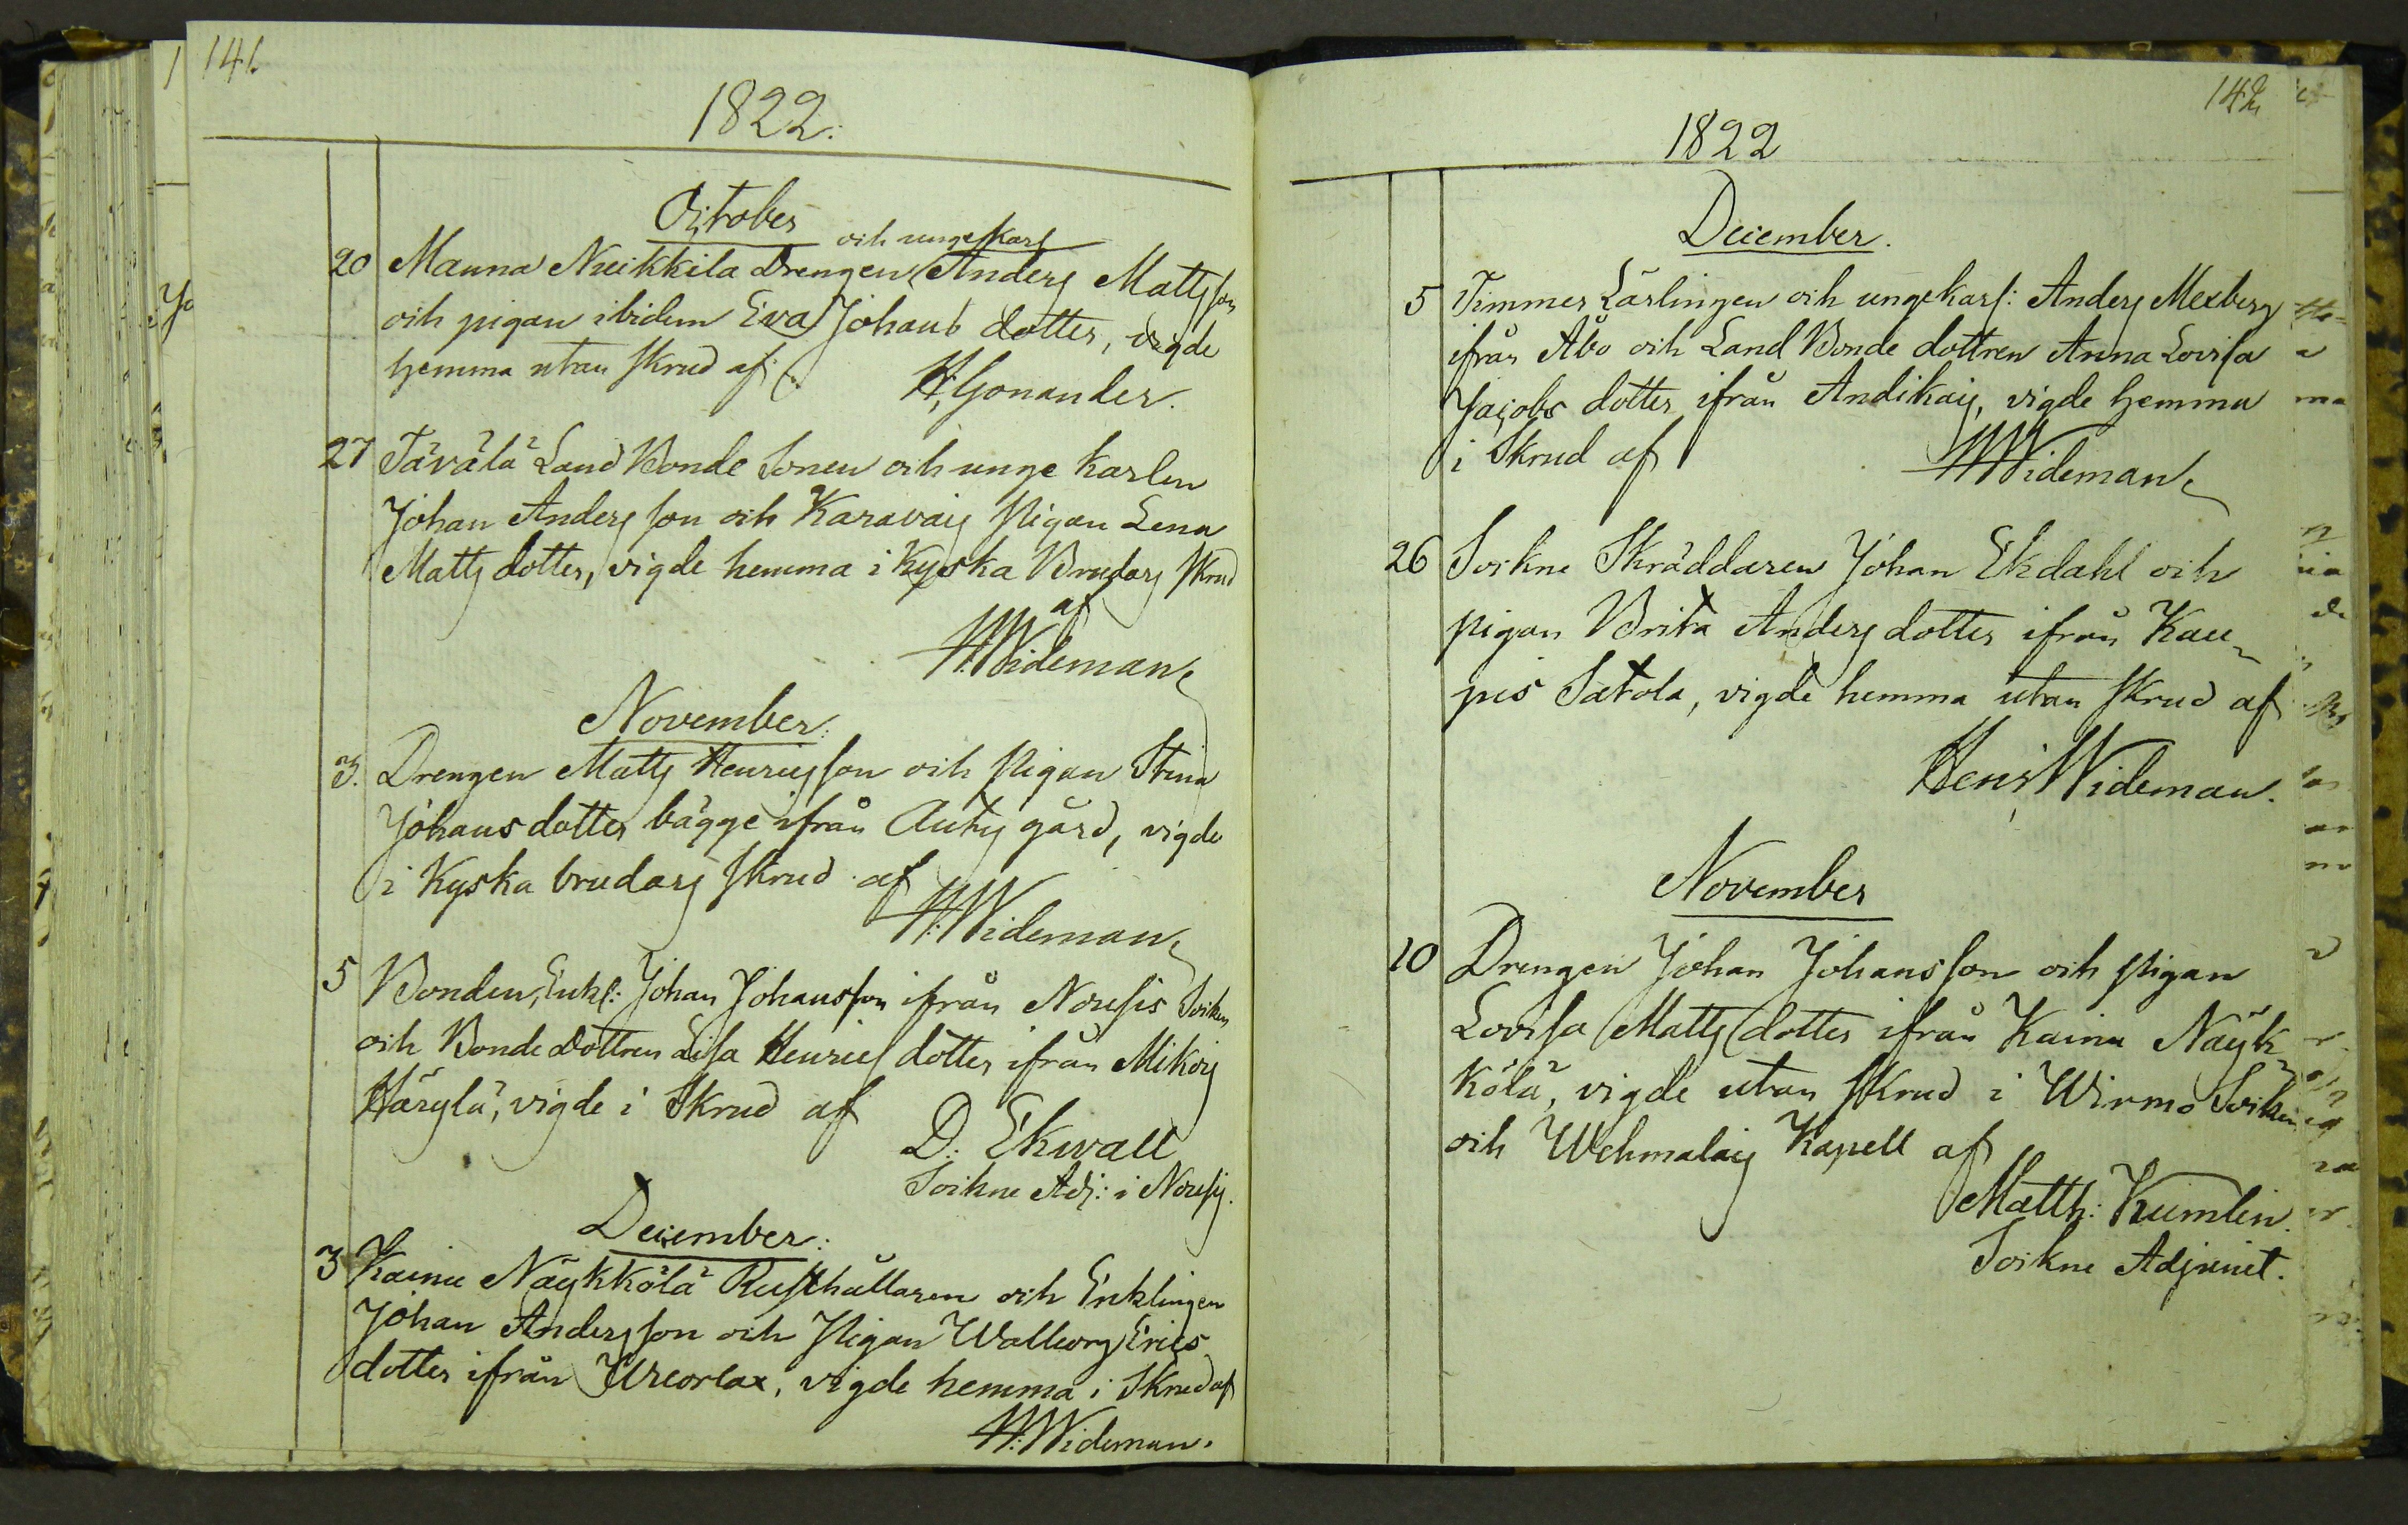 141.
1822.
October
och ungekarl
20 Manna Nuikkila Drengen Anders Mattsson
och pigan ibidem Eva Johans dotter, vigde
hemma utan skrud af
H: Gonander.
27 Tävälä Land Bonde Sonen och unge karlen
Johan Anders son och Karavais Pigan Lena
Matts dotter, vigde hemma i Kyska Brudars skrud
af
H: Wideman
November.
3. Drengen Matts Henricsson och Pigan Stina
Johans dotter bägge ifrån Autis gård, vigde
i Kyska brudars skrud af
H: Wideman
5 Bonden, Enkl: Johan Johansson ifrån Nousis Sockn
och Bonde Dottren Lisa Henrics dotter ifrån Mikois
Härylä, vigde i Skrud af
D: Ekwall
Sockne Adj: i Nousis.
December:
3 Kainu Näykkölä Rusthållaren och Enklingen
Johan Andersson och Pigan Walborg Erics
dotter ifrån, vigde hemma i Skrud af
H: Wideman.
142
1822
December.
5 Timmer Lärlingen och ungekarl: Anders Mexberg
ifrån Åbo och Land Bonde dottren Anna Lovisa
Jacobs dotter ifrån Andikais, vigde hemma
i Skrud af
H Wideman
26 Sockne Skräddaren Johan Ekdahl och
pigan Brita Anders dotter ifrån Kau-
pis Satola, vigde hemma utan skrud af
Henr: Wideman.
November
10 Drengen Johan Johansson och Pigan
Lovisa Matts dotter ifrån Kainu Näyk-
kölä, vigde utan skrud i Wirmo Sockn
och Wehmalais Kapell af
Matth: Kumlin.
Sockne Adjunct.